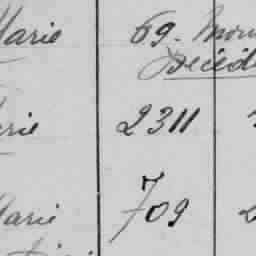 Marie 69. Mour
Décéd
arie 2311
Marie 709